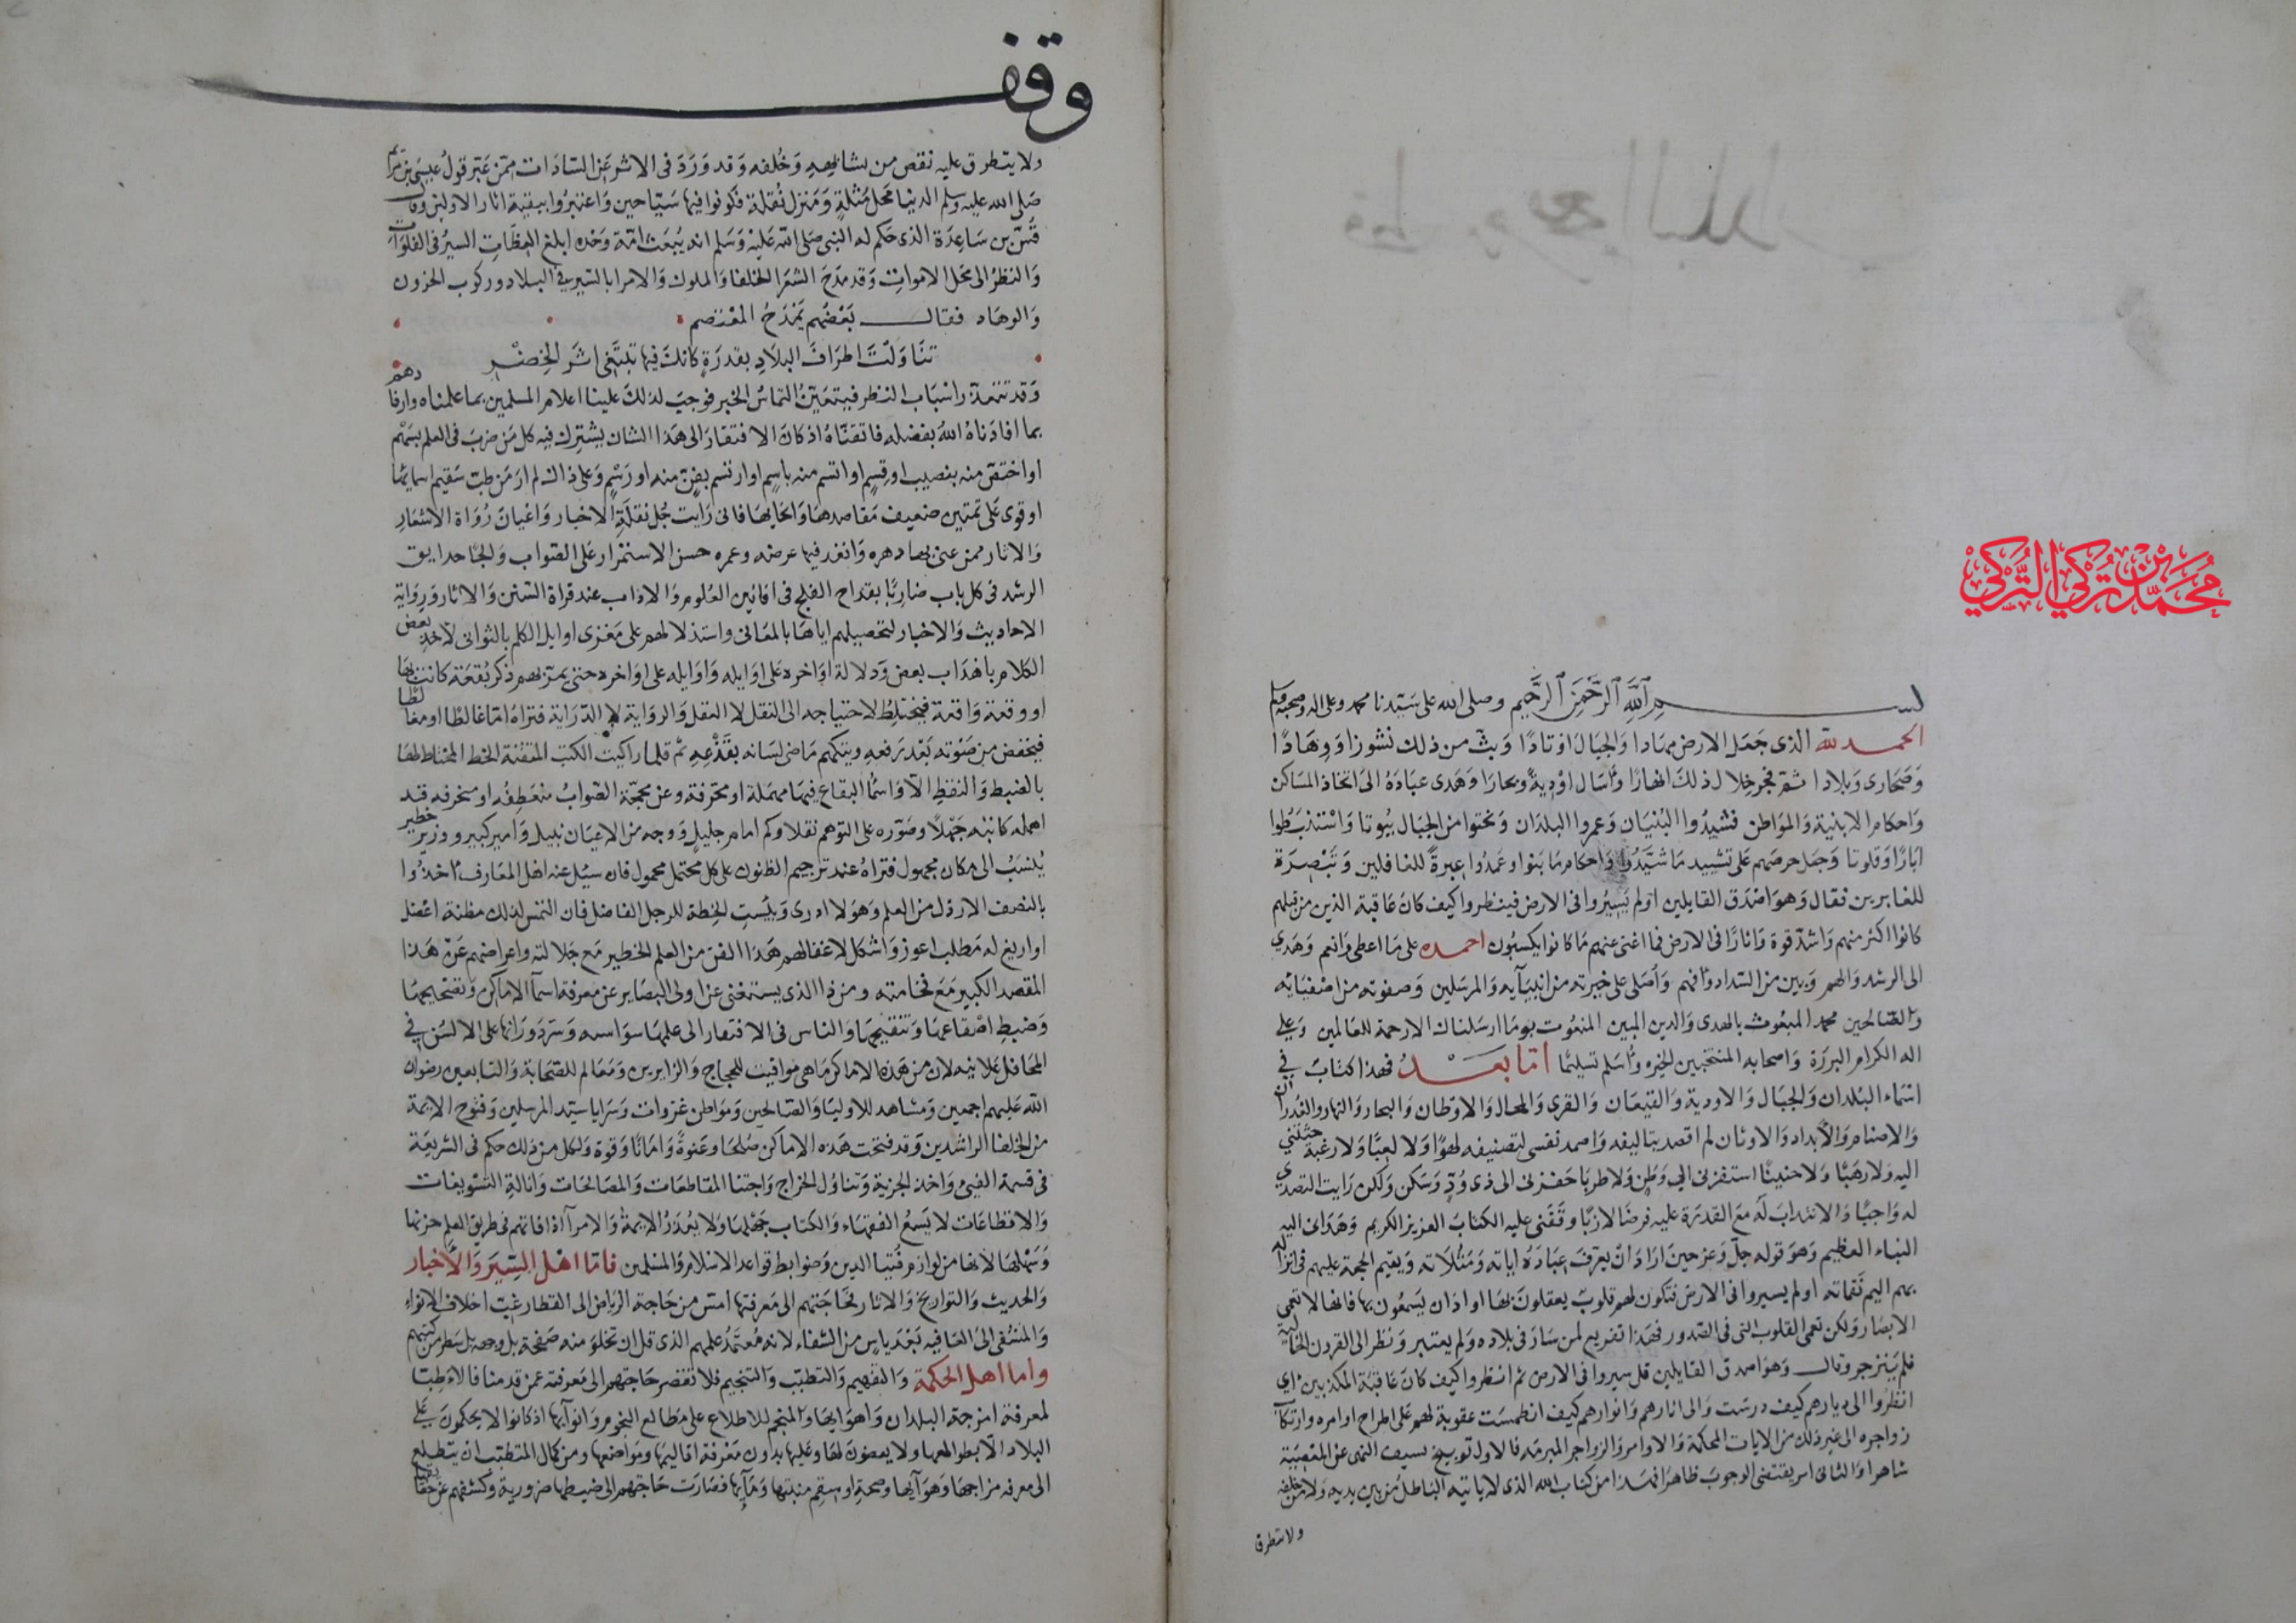 محمد بن تركي التركي
بسم الله الرحمن الرحيم وصلى الله على سيدنا محمد وعلى اله وصحبه وسلم
الحمد لله الذى جعل الارض مهادا والجبال اوتادا وبث من ذلك نشوزا ووهادا
وصحارى وبلادا ثم فجر خلال ذلك انهارا واسال اودية وبحارا وهدى عباده الى اتخاذ المساكن
واحكام الابنية والمواطن فشيدوا البنيان وعمروا البلدان ونحتوا من الجبال بيوتا واستنبطوا
ابارا وقلوتا وجعل حرصهم على تشييد ما شيدوا واحكام ما بنوا وعمدوا عبرة للغافلين وتبصرة
للغابرين فقال وهو اصدق القايلين اولم يسيروا فى الارض فينظروا كيف كان عاقبة الذين من قبلهم
كانوا اكثر منهم واشد قوة واثارا فى الارض فما اغنى عنهم ما كانوا يكسبون احمده على ما اعطى وانعم وهدي
الى الرشد والهم وبين من السداد وافهم واصلى على خيرته من انبيآيه والمرسلين وصفوته من اصفيائه
والصالحين محمد المبعوث بالهدى والدين المبين المنعوت بوما ارسلناك الا رحمة للعالمين وعلي
اله الكرام البررة واصحابه المنتخبين الخيره واسلم تسليما اما بعد فهذا كتاب في
اسماء البلدان والجبال والاودية والقيعان والقرى والمحال والاوطان والبحار والانهار والغدران
والاصنام والابداد والاوثان لم اقصد بتاليفه واصمد نفسى لتصنيفه لهوا ولا لعبا ولا رغبة حثتني
اليه ولا رهبا ولا حنينا استفزنى الي وطن ولا طربا حفزنى الى ذى ود وسكن ولكن رايت التصدي
له واجبا والانتداب له مع القدرة عليه فرضا لازبا وقفنى عليه الكتاب العزيز الكريم وهدانى اليه
النباء العظيم وهو قوله جل وعز حين اراد ان يعرف عباده اياته ومثلاته ويقيم الحجة عليهم فى انزاله
بهم اليم نقماته اولم يسيروا فى الارض فتكون لهم قلوب يعقلون بها او اذان يسمعون بها فانها لا تعمى
الابصار ولكن تعمى القلوب التى فى الصدور فهذا تقريع لمن سار فى بلاده ولم يعتبر ونظر الى القرون الخالية
فلم ينزجر وقال وهو اصدق القايلين قل سيروا فى الارض ثم انظروا كيف كان عاقبة المكذبين اي
انظروا الى ديارهم كيف درست والى اثارهم وانوارهم كيف انطمست عقوبة لهم على اطراح اوامره وارتكاب
زواجره الى غير ذلك من الايات المحكمة والاوامر والزواجر المبرمه فالاول توبيخ لسبق النهى عن المعصية
شاهرا والثانى امر يقتضى الوجوب ظاهرا فهذا من كتاب الله الذى لا ياتيه الباطل من بين يديه ولا من خلفه
ولا يتطرق
وقف
ولا يتطرق عليه نقص من وخلفه وقد ورد فى الاثر عن السادات ممن عبر قول عيسى بن مريم
صلى الله عليه وسلم الدنيا محل مثلة ومنزل نقلة فكونوا فيها سياحين واعتبروا ببقية اثار الاولين وقال
قس بن ساعدة الذى حكم له النبى صلى الله عليه وسلم انه يبعث امة وحده ابلغ العظات السير فى الفلوات
والنظر الى محل الاموات وقد مدح الشعرا الخلفا والملوك والامرا بالسير فى البلاد وركوب الحزون
والوهاد فقال بعضهم يمدح المعتصم
تناولت اطراف البلاد بقدرة كانك فيها تبتغى اثر الخضر
وقد تتعذر اسباب النظر فيتعين التماس الخبر فوجب لذلك علينا اعلام المسلمين بما علمناه وارفادهم
بما افادناه الله بفضله فاتقناه اذ كان الافتقار الى هذا الشان يشترك فيه كل من ضرب فى العلم بسهم
او اختص منه بنصيب او قسم او اتسم منه باسم او ارتسم بفن منه او رسم وعلى ذلك لم ار من طب سقيم اسمايها
او قوى على تمتين ضعيف مقاصدها وانحايها فانى رايت جل نقلة الاخبار واعيان رواة الاشعار
والاثار ممن عنى بها دهره وانفد فيها عرضه وعمره حسن الاستمرار على الصواب والجا حدايق
الرشد فى كل باب ضاربا بقداح الفلج فى افانين العلوم والاداب عند قراة السنن والاثار ورواية
الاحاديث والاخبار لتحصيلهم اياها بالمعانى واستدلالهم على مغزى اوايل الكلم بالثوانى لاخذ بعض
الكلام باهداب بعض ودلالة اواخره على اوايله واوايله على اواخره حتى يمر بهم ذكر بقعة كانت بها
او وقعة واقعة فيختلط لاحتياجه الى النقل لا العقل والرواية لا الدراية فتراه اما غالطا او مغالطا
فيخفض من صوته بعد رفعه ويتكهم ماضى لسانه بقذعه ثم قلما رايت الكتب المتقنة الخط المحتاط لها
بالضبط والنقط الا واسما البقاع فيها مهملة او محرفة وعن محجة الصواب منعطفه او منحرفه قد
اهمله كاتبه جهلا وصوره على التوهم نقلا وكم امام جليل ووجه من الاعيان نبيل وامير كبير ووزير خطير
ينسب الى مكان مجهول فتراه عند ترجيم الظنون على كل محتمل محمول فان سئل عنه اهل المعارف اخذوا
بالنصف الارذل من العلم وهو لا ادرى وبئست الخطة للرجل الفاضل فان التمس لذلك مظنة اعضل
او اريغ له مطلب اعوز واشكل لاغفالهم هذا الفن من العلم الخطير مع جلالته واعراضهم عن هذا
المقصد الكبير مع فخامته ومن ذا الذى يستغنى من اولى البصاير عن معرفة اسما الاماكن وتصحيحها
وضبط اصقاعها وتنقيحها والناس فى الافتقار الى علمها سواسيه وسر دورانها على الالسن في
المحافل علانيه لان من هذه الاماكن ما هى مواقيت للحجاج والزايرين ومعالم للصحابة والتابعين رضوان
الله عليهم اجمعين ومشاهد للاوليا والصالحين ومواطن غزوات وسرايا سيد المرسلين وفتوح الايمة
من الخلفا الراشدين وقد فتحت هذه الاماكن صلحا وعنوة وامانا وقوة ولكل من ذلك حكم فى الشريعة
فى قسمة الفىء واخذ الجزية وتناول الخراج واجتنا المقاطعات والمصالحات وانالة التسويغات
والاقطاعات لا يسع الفقهاء والكتاب جهلها ولا يعذر الايمة والامرآ اذا فاتهم فى طريق العلم حزنها
وسهلها لانها من لوازم فتيا الدين وضوابط قواعد الاسلام والمسلمين فاما اهل السير والاخبار
والحديث والتواريخ والاثار فحاجتهم الى معرفتها امس من حاجة الرياض الى القطار غب اخلاف الانواء
والمشفى الى العافيه بعد ياس من الشفاء لانه معتمد علمهم الذى قل ان تخلو منه صفحة بل وجهه بل سطر من كتبهم
واما اهل الحكمة والتفهيم والتطبب والتنجيم فلا تقصر حاجتهم الى معرفته عمن قدمنا فالاطبا
لمعرفة امزجة البلدان واهوايها والمنجم للاطلاع على مطالع النجوم وانوآيها اذ كانوا لا يحكمون علي
البلاد الا بطوالعها ولا يقضون لها وعليها بدون معرفة اقاليمها ومواضعها ومن كمال المتطبب ان يتطلع
الى معرفة مزاجها وهوآيها وصحة او سقم منبتها ومآيها فصارت حاجتهم الى ضبطها ضرورية وكشفهم عن حقايقها